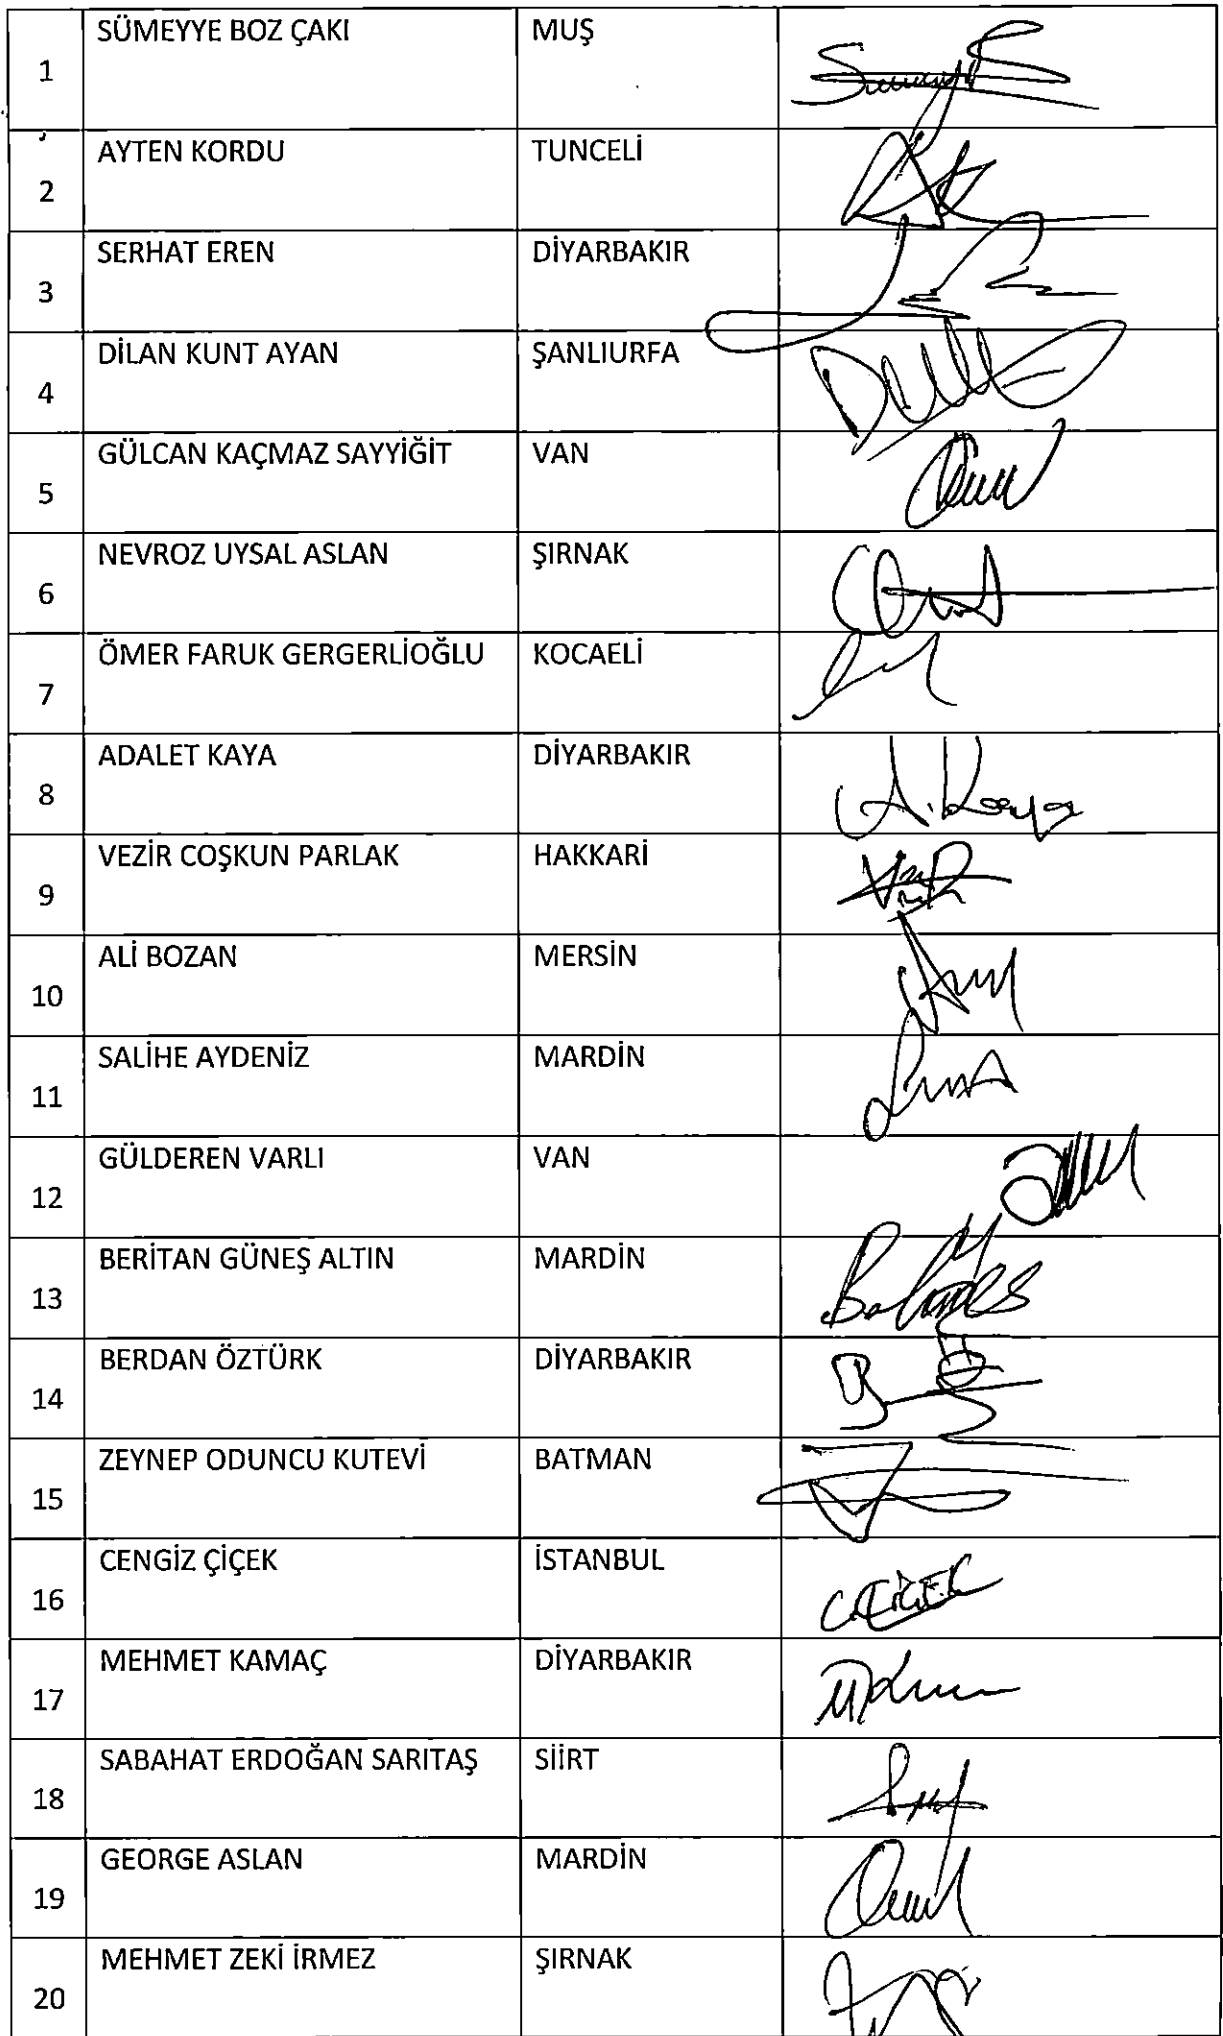 1 SÜMEYYE BOZ ÇAKI MUŞ
2 AYTEN KORDU TUNCELİ
3 SERHAT EREN DİYARBAKIR
4 DİLAN KUNT AYAN ŞANLIURFA
5 GÜLCAN KAÇMAZ SAYYİĞİT VAN
6 NEVROZ UYSAL ASLAN ŞIRNAK
7 ÖMER FARUK GERGERLİOĞLU KOCAELİ
8 ADALET KAYA DİYARBAKIR A. Kaya
9 VEZİR COŞKUN PARLAK HAKKARİ
10 ALİ BOZAN MERSİN
11 SALİHE AYDENİZ MARDİN
12 GÜLDEREN VARLI VAN
13 BERİTAN GÜNEŞ ALTIN MARDİN
14 BERDAN ÖZTÜRK DİYARBAKIR
15 ZEYNEP ODUNCU KUTEVİ BATMAN
16 CENGİZ ÇİÇEK İSTANBUL
17 MEHMET KAMAÇ DİYARBAKIR
18 SABAHAT ERDOĞAN SARITAŞ SİİRT
19 GEORGE ASLAN MARDİN
20 MEHMET ZEKİ İRMEZ ŞIRNAK